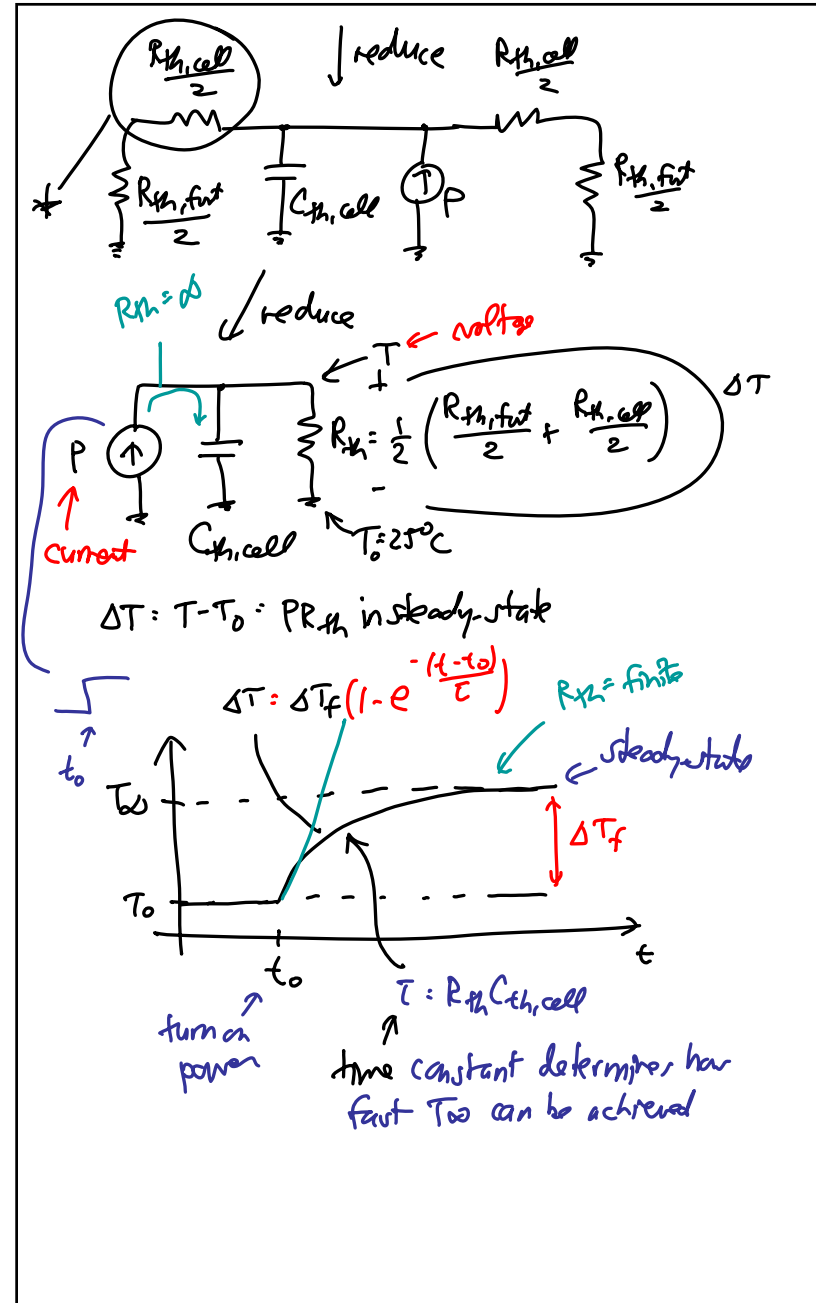 R_th,cell/2
reduce
R_th,cell/2
R_th,fut/2
C_th,cell
P
R_th,fut/2
R_th = ∞
reduce
T ← voltage
+
ΔT
P
R_th = 1/2 (R_th,fut/2 + R_th,cell/2)
-
current
C_th,cell
T₀ = 25°C
ΔT = T - T₀ = PR_th in steady-state
ΔT = ΔT_f (1 - e^(-(t-t₀)/τ))
R_th = finite
t₀
steady-state
T∞
ΔT_f
T₀
t
t₀
τ = R_th C_th,cell
turn on
power
time constant determines how
fast T∞ can be achieved